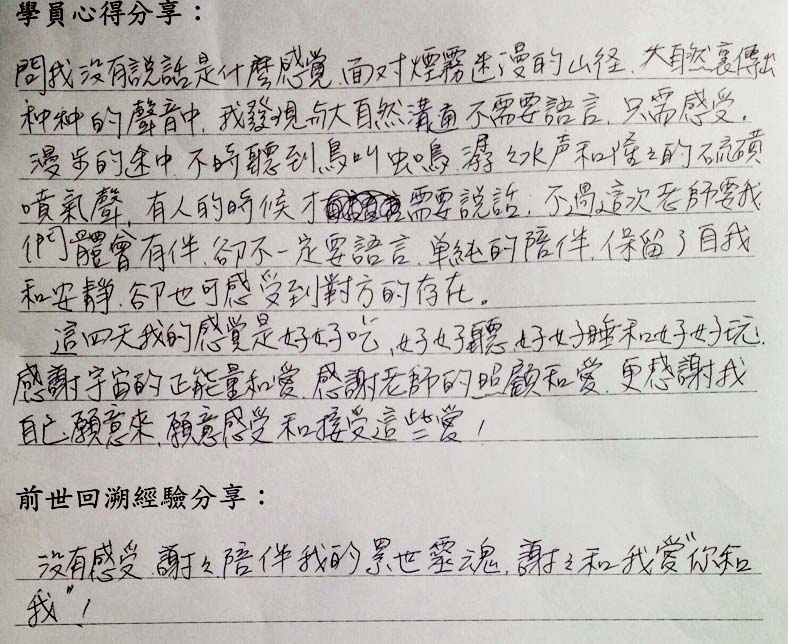 學員心得分享：
問我沒有說話是什麼感覺，面对煙霧迷漫的山径，大自然裏傳出
种种的聲音中，我發現与大自然溝通不需要語言，只需感受，
漫步的途中，不時聽到鳥叫虫鳴，潺々水声和隆々的硫磺
噴氣聲，有人的時候才需要說話，不過這次老師要我
們體會有伴，卻不一定要語言，单純的陪伴，保留了自我
和安靜，卻也可感受到對方的存在。
這四天我的感覺是好好吃、好好聽、好好睡和好好玩，
感謝宇宙的正能量和愛，感謝老師的照顧和愛，更感謝我
自己願意來，願意感受和接受這些愛！
前世回溯經驗分享：
沒有感受，謝々陪伴我的累世靈魂，謝々和我愛"你和
我"！